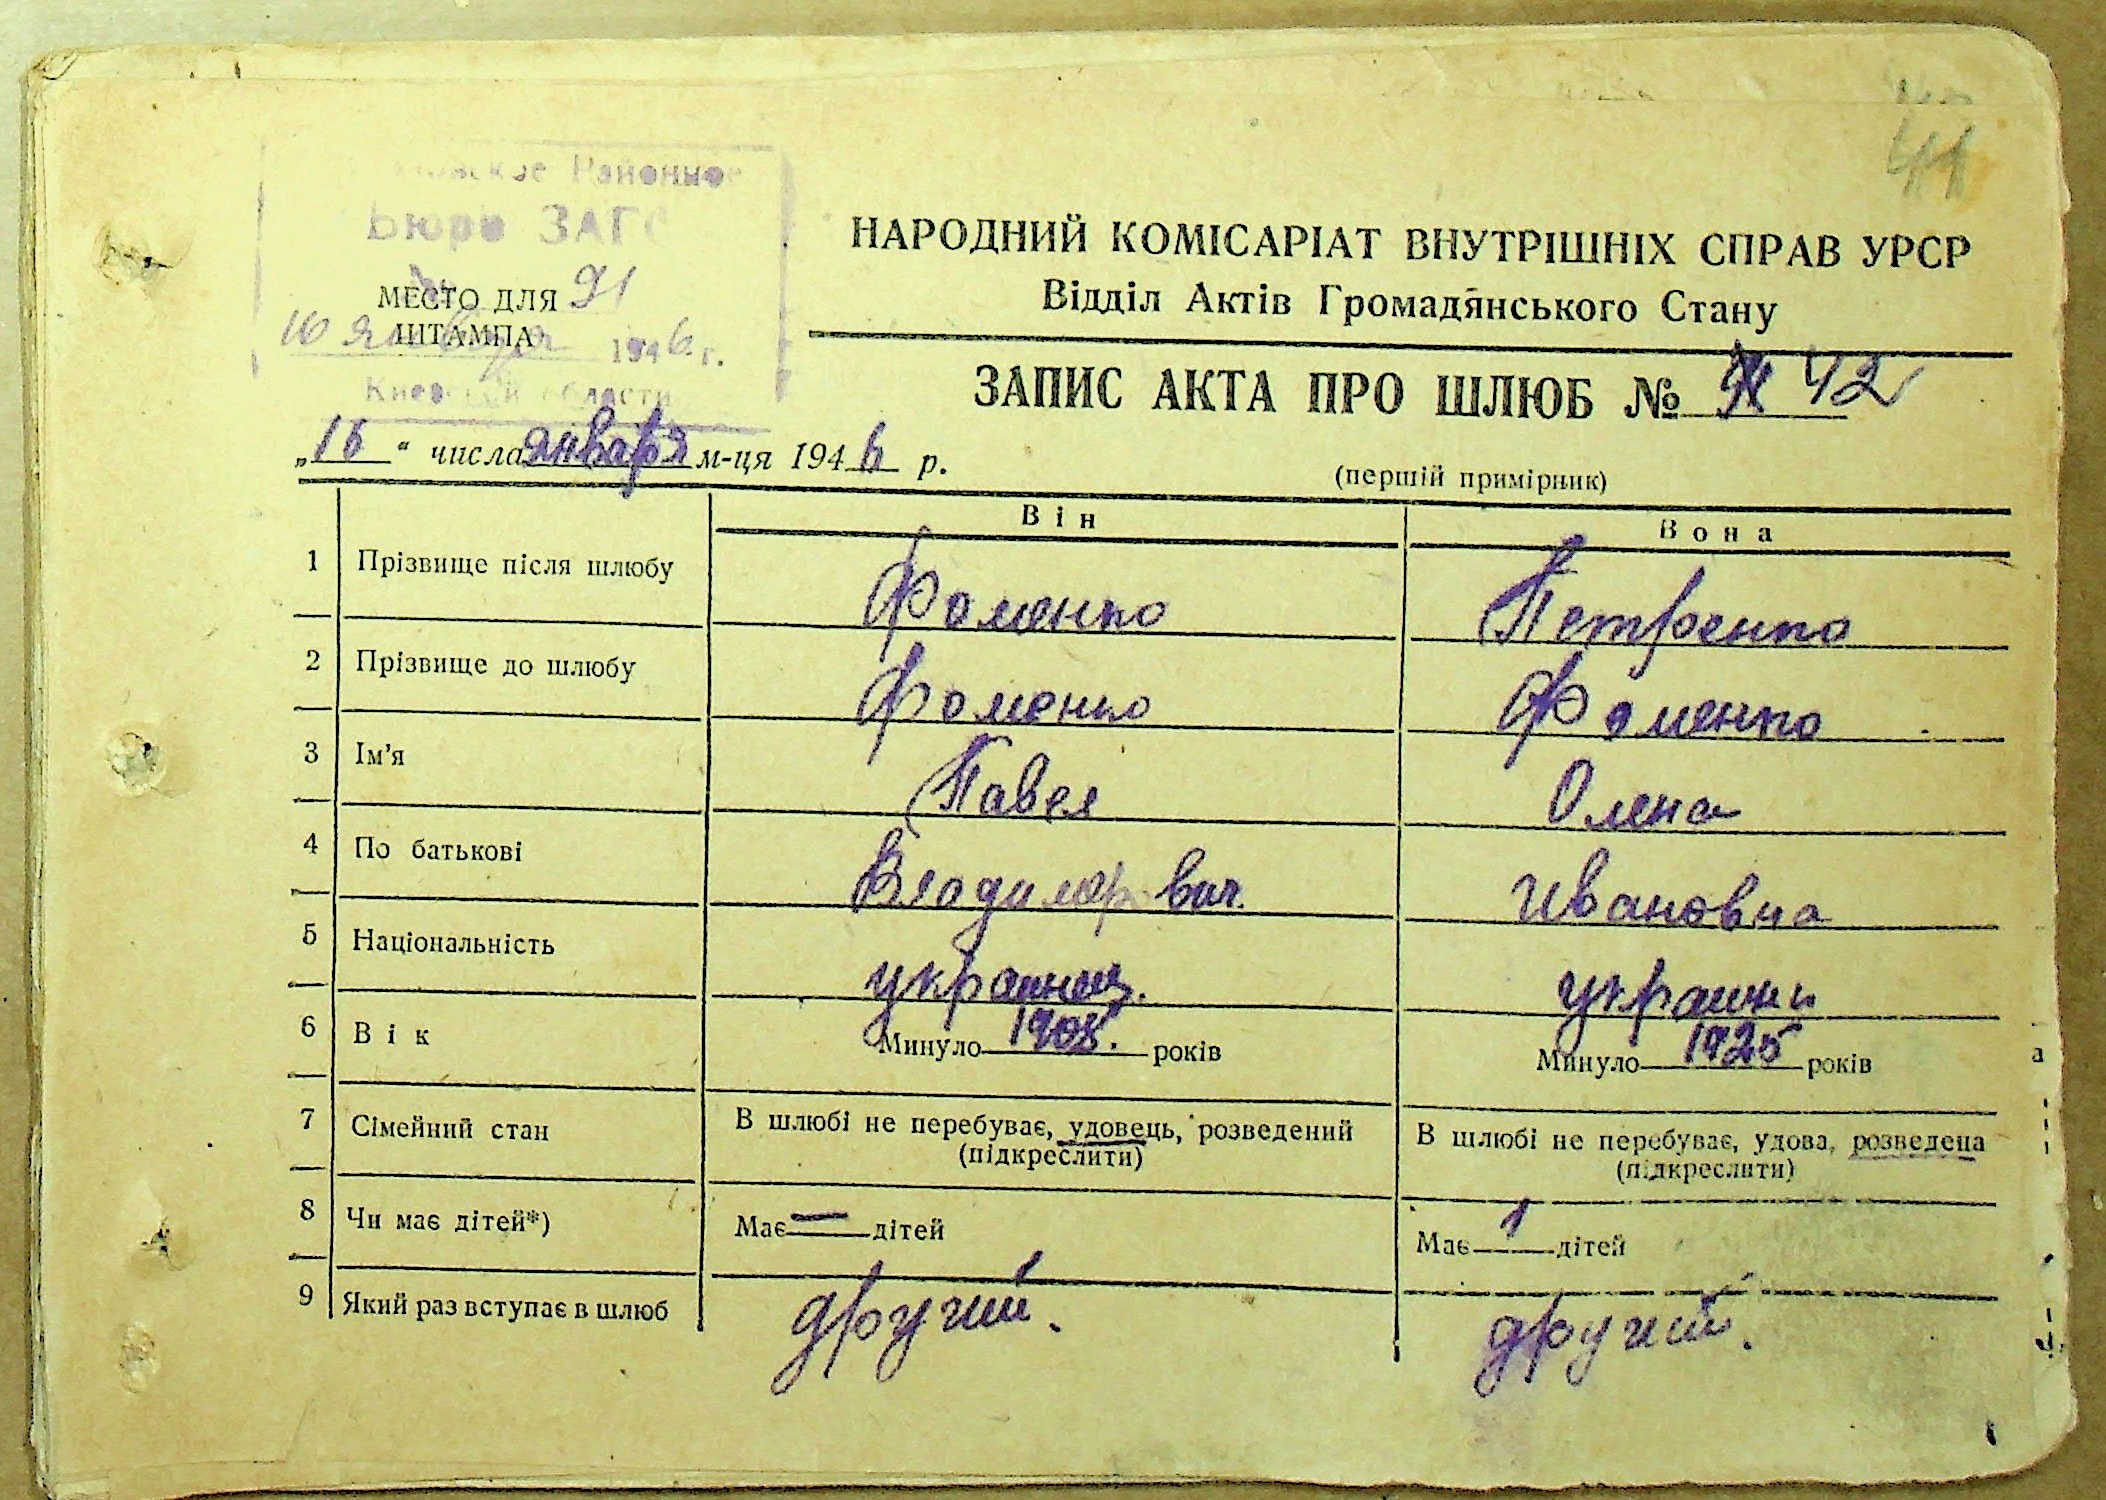 41
Районное
Бюро ЗАГС
НАРОДНИЙ КОМІСАРІАТ ВНУТРІШНІХ СПРАВ УРСР
Відділ Актів Громадянського Стану
МЕСТО ДЛЯ 91
ШТАМПА
января 1946 г.
Киевской области
ЗАПИС АКТА ПРО ШЛЮБ № 42
„16“ числа января м-ця 1946 р.
(першій примірник)
Він Вона
1 Прізвище після шлюбу Фоменко Петренко
2 Прізвище до шлюбу Фоменко Фоменко
3 Ім'я Павел Олена
4 По батькові Владимирович Ивановна
5 Національність украинец. украинк
6 Вік Минуло 1908. років Минуло 1925 років
7 Сімейний стан В шлюбі не перебуває, удовець, розведений В шлюбі не перебуває, удова, розведена
(підкреслити) (підкреслити)
8 Чи має дітей*) Має — дітей Має 1 дітей
9 Який раз вступає в шлюб другий. другий.